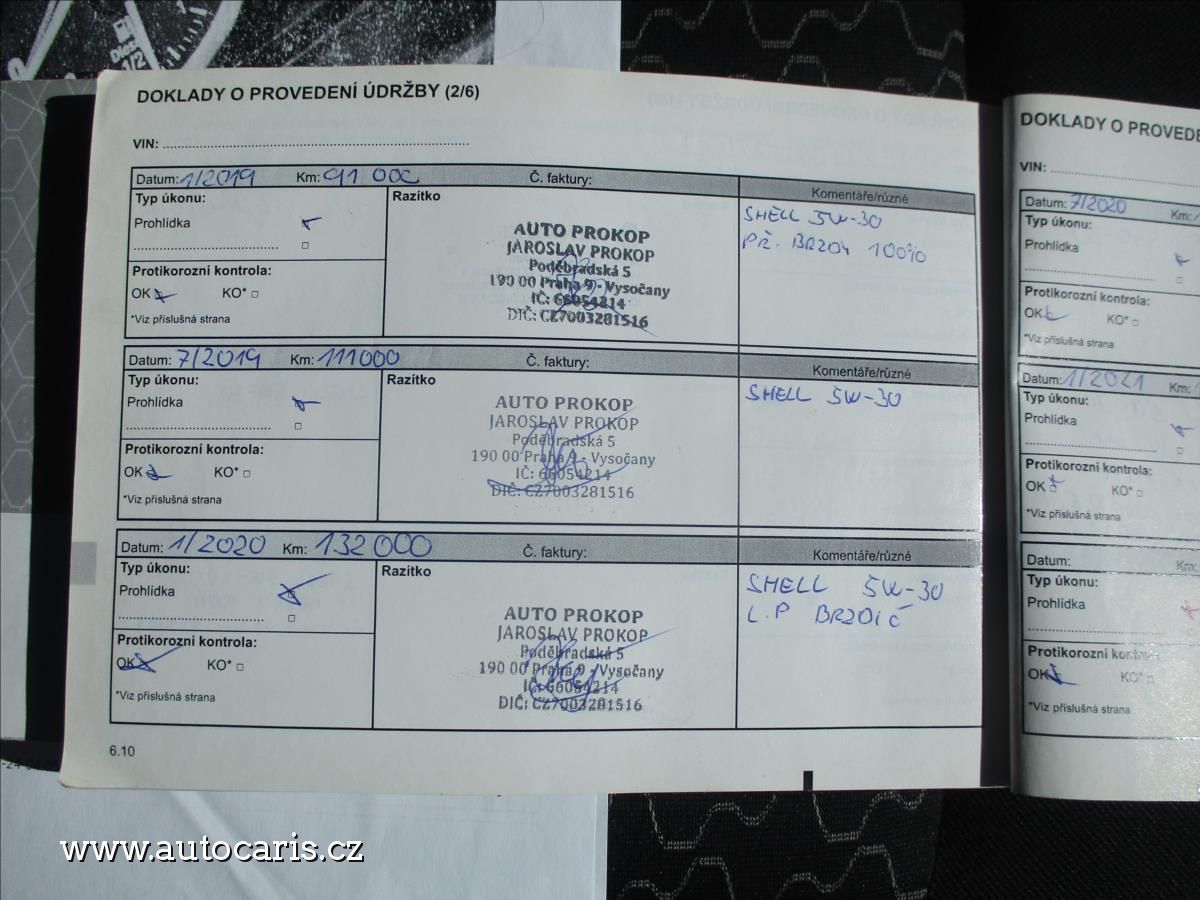 Diesel
1/2
DOKLADY O PROVEDENÍ ÚDRŽBY (2/6)
VIN:
Datum: 1/2019 Km: 91 000 Č. faktury:
Komentáře/různé
Typ úkonu:
Razítko
Prohlídka
Protikorozní kontrola:
OK KO*
*Viz příslušná strana
AUTO PROKOP
JAROSLAV PROKOP
Poděbradská 5
190 00 Praha 9 - Vysočany
IČ: 66054214
DIČ: CZ7003281516
SHELL 5W-30
PŘ. BRZDY 100%
Datum: 7/2019 Km: 111000 Č. faktury:
Komentáře/různé
Typ úkonu:
Razítko
Prohlídka
Protikorozní kontrola:
OK KO*
*Viz příslušná strana
AUTO PROKOP
JAROSLAV PROKOP
Poděbradská 5
190 00 Praha 9 - Vysočany
IČ: 66054214
DIČ: CZ7003281516
SHELL 5W-30
Datum: 1/2020 Km: 132 000 Č. faktury:
Komentáře/různé
Typ úkonu:
Razítko
Prohlídka
Protikorozní kontrola:
OK KO*
*Viz příslušná strana
AUTO PROKOP
JAROSLAV PROKOP
Poděbradská 5
190 00 Praha 9 - Vysočany
IČ: 66054214
DIČ: CZ7003281516
SHELL 5W-30
L.P
6.10
DOKLADY O PROVEDE
VIN:
Datum: 7/2020 Km:
Typ úkonu:
Prohlídka
Protikorozní kontrola:
OK KO*
*Viz příslušná strana
Datum: 1/2021 Km:
Typ úkonu:
Prohlídka
Protikorozní kontrola:
OK KO*
*Viz příslušná strana
Datum: Km:
Typ úkonu:
Prohlídka
Protikorozní kontrola:
OK KO*
*Viz příslušná strana
www.autocaris.cz